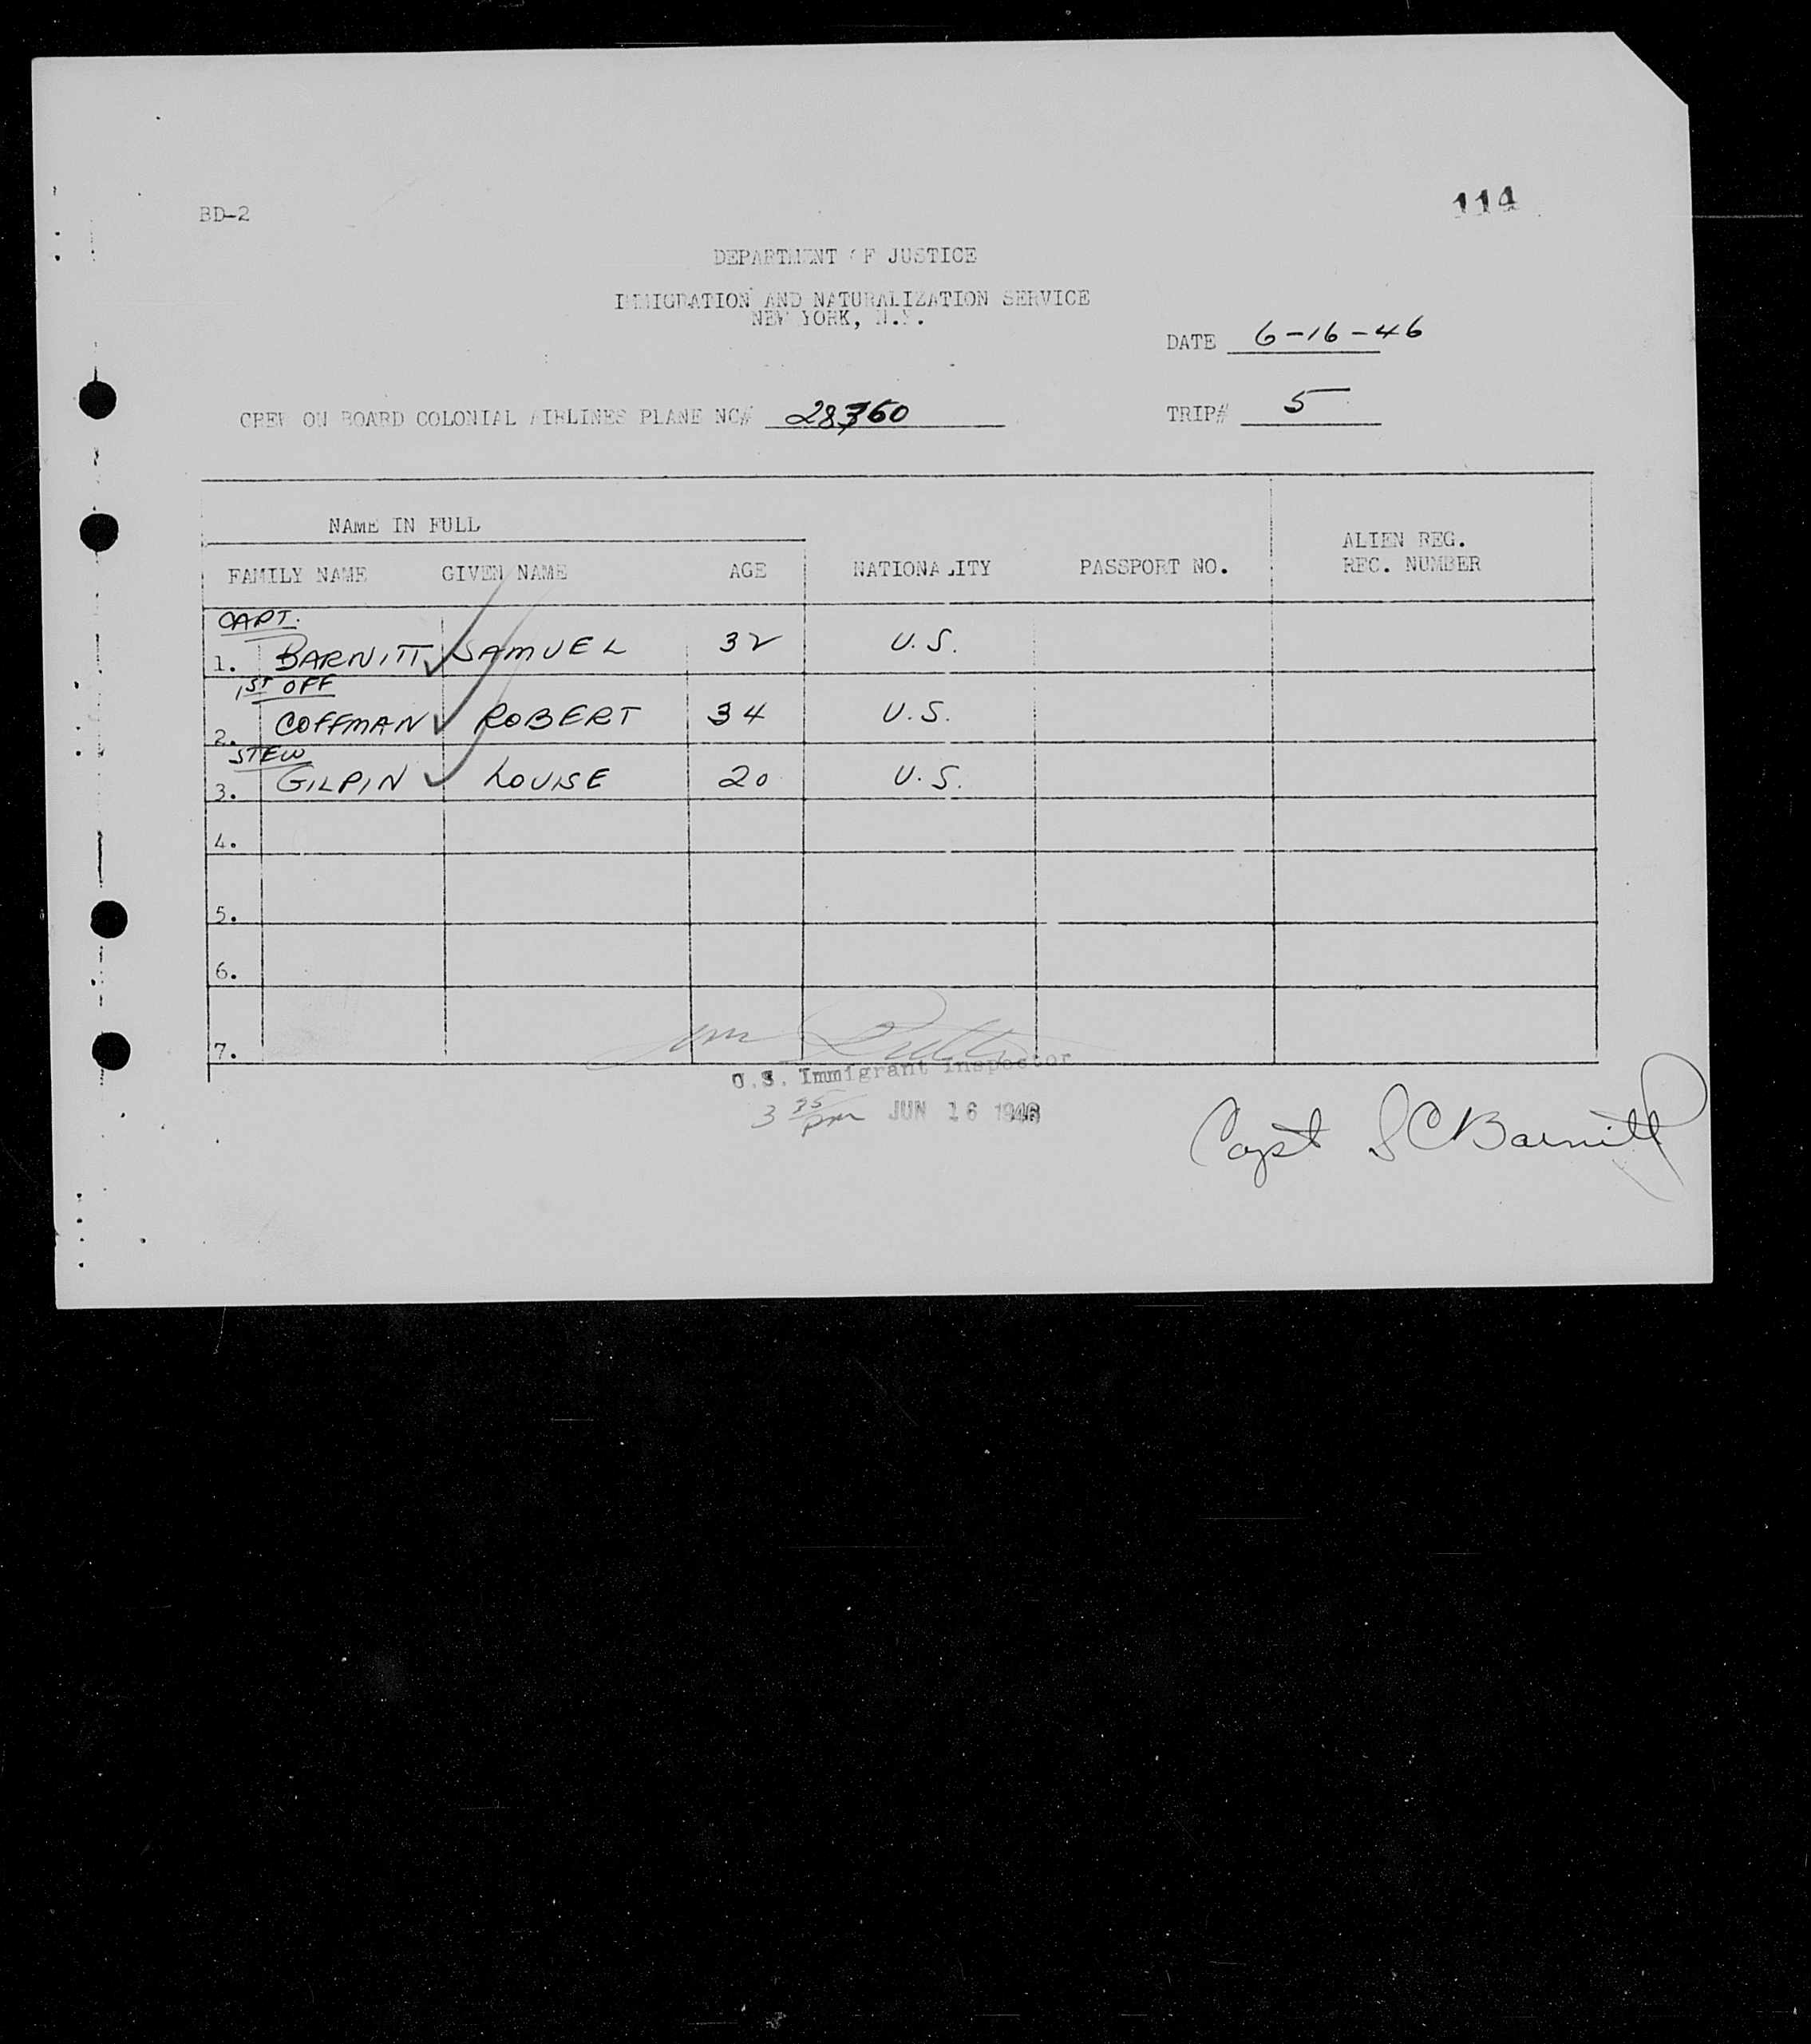 BD-2
114
DEPARTMENT OF JUSTICE
IMMIGRATION AND NATURALIZATION SERVICE
NEW YORK, N.Y.
DATE 6-16-46
CREW ON BOARD COLONIAL AIRLINES PLANE NC# 28360
TRIP# 5
NAME IN FULL
FAMILY NAME GIVEN NAME AGE NATIONALITY PASSPORT NO. ALIEN REG.
REC. NUMBER
CAPT.
1. BARNITT SAMUEL 32 U.S.
1ST OFF
2. COFFMAN ROBERT 34 U.S.
STEW
3. GILPIN LOUISE 20 U.S.
4.
5.
6.
7.
U.S. Immigrant Inspector
3 35 pm JUN 16 1946
Capt S C Barnitt